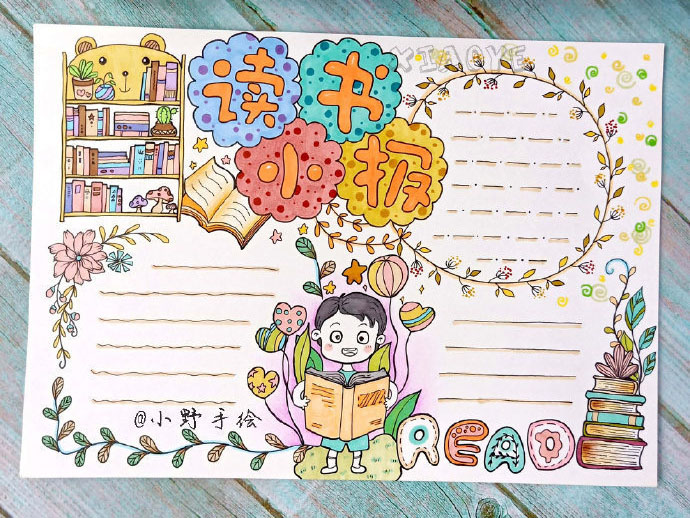 读书
XIAOYE
小报
@小野手绘
READ